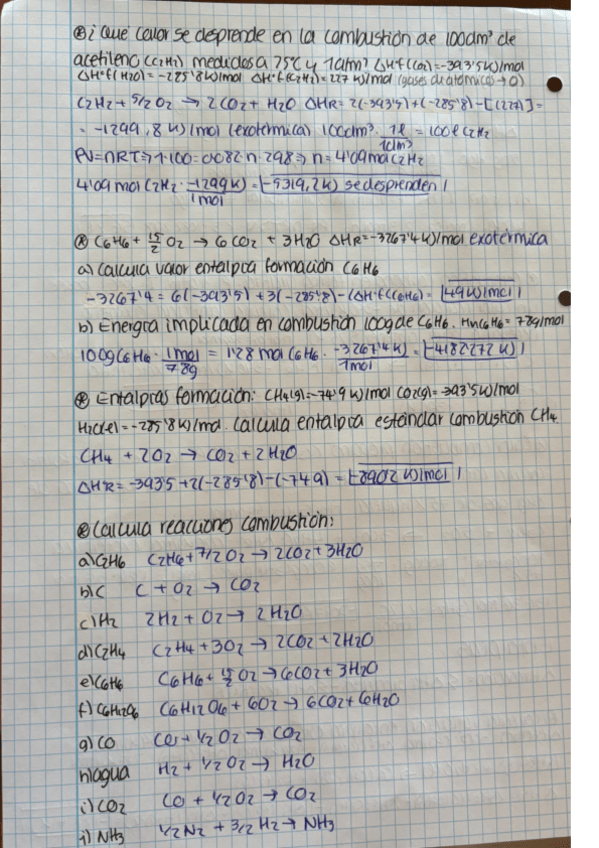 ⊛ ¿Qué calor se desprende en la combustión de 100dm³ de
acetileno (C2H2) medidos a 25ºC y 1atm? ΔHºf(CO2)=-393'5KJ/mol
ΔHºf(H2O)=-285'8KJ/mol ΔHºf(C2H2)=227KJ/mol (gases diatómicos→0)
C2H2 + 5/2 O2 → 2CO2 + H2O ΔHR= 2(-393'5)+(-285'8)-[(227)]=
= -1299,8 KJ/mol (exotérmica) 100dm³ · 1l/1dm³ = 100l C2H2
PV=nRT⇒1·100=0'082·n·298⇒ n=4'09mol C2H2
4'09 mol C2H2 · -1299KJ/1mol = -5319,2KJ se desprenden
⊛ C6H6 + 15/2 O2 → 6CO2 + 3H2O ΔHR=-3267'4KJ/mol exotérmica
a) Calcula valor entalpía formación C6H6
-3267'4 = 6(-393'5)+3(-285'8)-(ΔHºf(C6H6)= 49KJ/mol
b) Energía implicada en combustión 100g de C6H6. MmC6H6= 78g/mol
100g C6H6 · 1mol/78g = 1'28 mol C6H6 · -3267'4KJ/1mol = -4182'272KJ
⊛ Entalpías formación: CH4(g)=-74'9KJ/mol CO2(g)=-393'5KJ/mol
H2O(l)=-285'8KJ/mol. Calcula entalpía estándar combustión CH4
CH4 + 2O2 → CO2 + 2H2O
ΔHR=-393'5+2(-285'8)-(-74'9)= -890'2KJ/mol
⊛ Calcula reacciones combustión:
a) C2H6 C2H6 + 7/2 O2 → 2CO2 + 3H2O
b) C C + O2 → CO2
c) H2 2H2 + O2 → 2H2O
d) C2H4 C2H4 + 3O2 → 2CO2 + 2H2O
e) C6H6 C6H6 + 15/2 O2 → 6CO2 + 3H2O
f) C6H12O6 C6H12O6 + 6O2 → 6CO2 + 6H2O
g) CO CO + 1/2 O2 → CO2
h) agua H2 + 1/2 O2 → H2O
i) CO2 CO + 1/2 O2 → CO2
j) NH3 1/2 N2 + 3/2 H2 → NH3